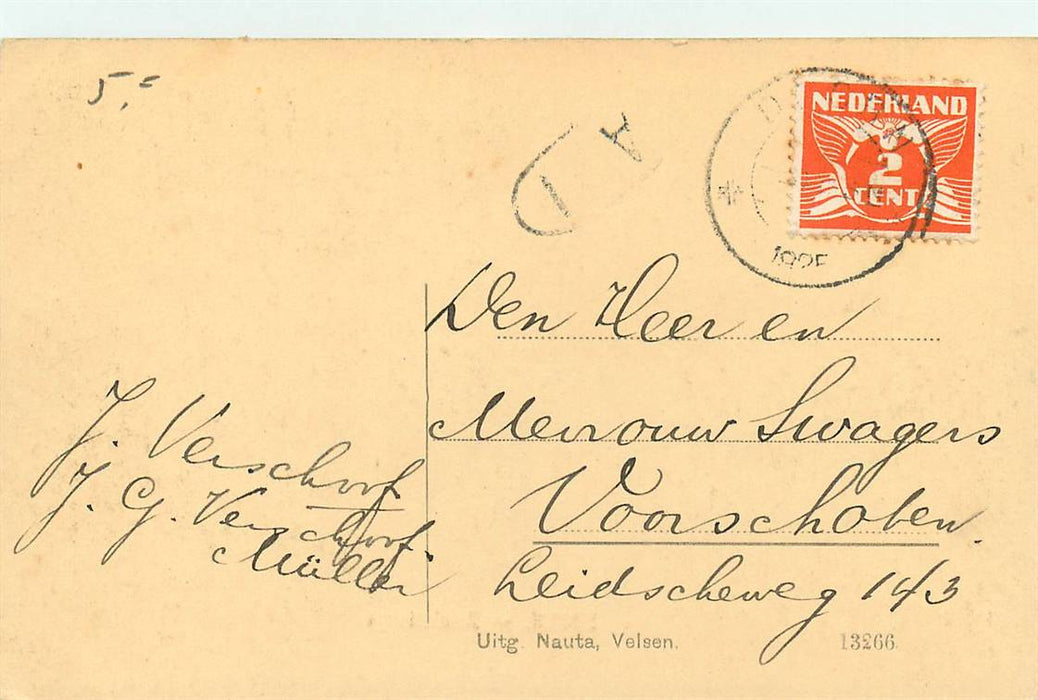 5,=
A
NEDERLAND
2
CENT
1925
Den Heer en
Mevrouw Swagers
Voorschoten
Leidscheweg 143
J. Verschoof
J. G. Verschoof
Müller
Uitg. Nauta, Velsen.
13266.